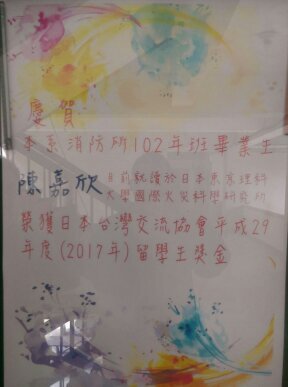 慶賀
本系消防所102年班畢業生
陳嘉欣
目前就讀於日本東京理科
大學國際火災科學研究所
榮獲日本台灣交流協會平成29
年度(2017年)留學生獎金